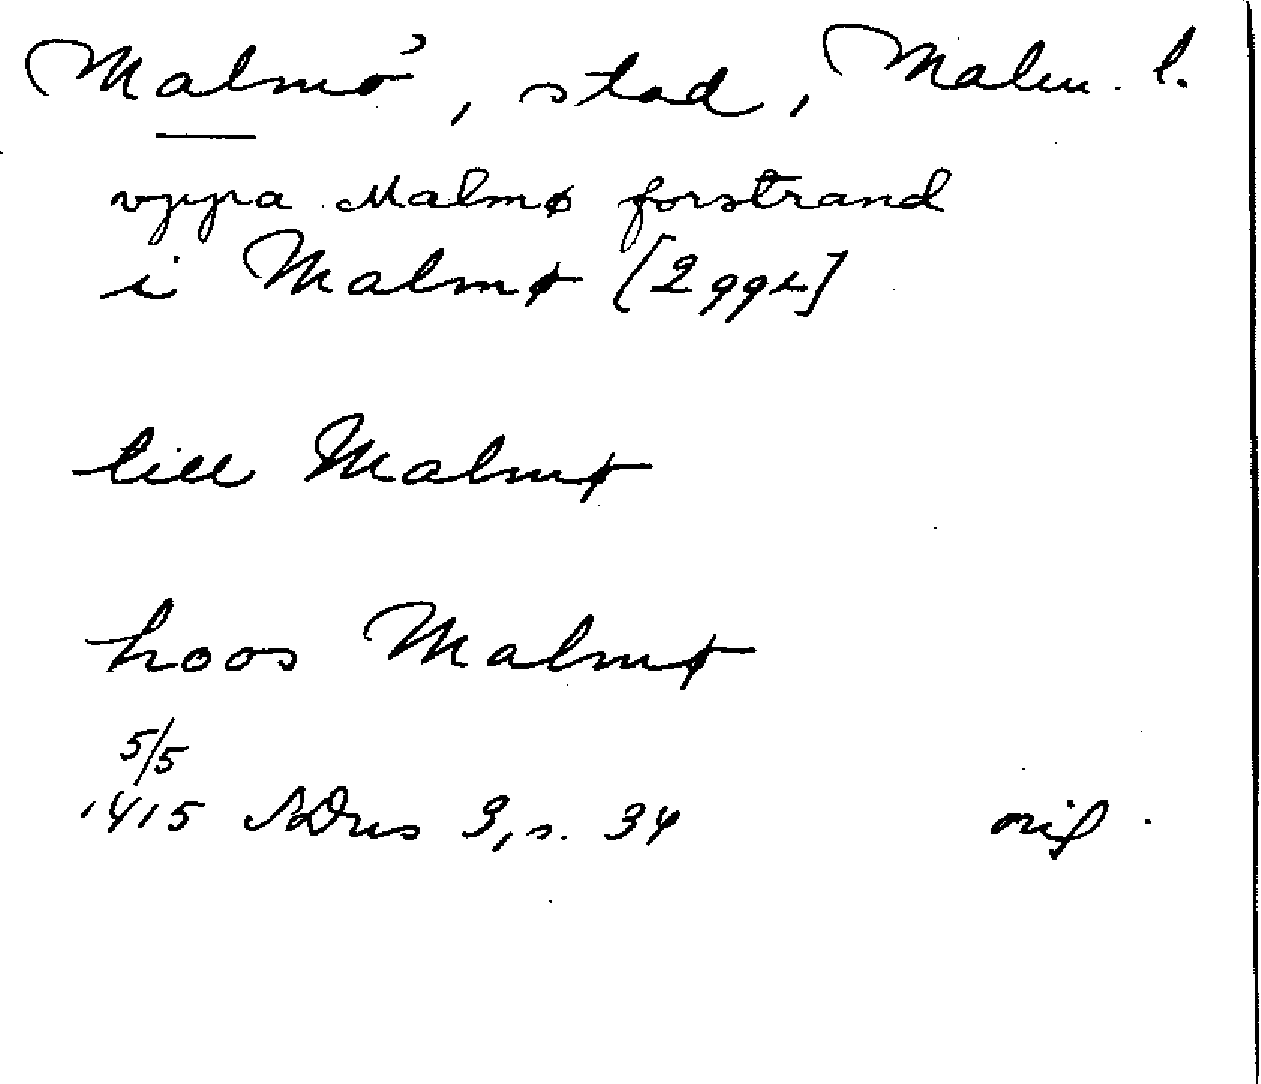 Malmö, stad, Malm. l.
vppa Malmø forstrand
i Malmø [2 ggr]
till Malmø
hoos Malmø
5/5
1415 SDns 3, s. 34 orig.